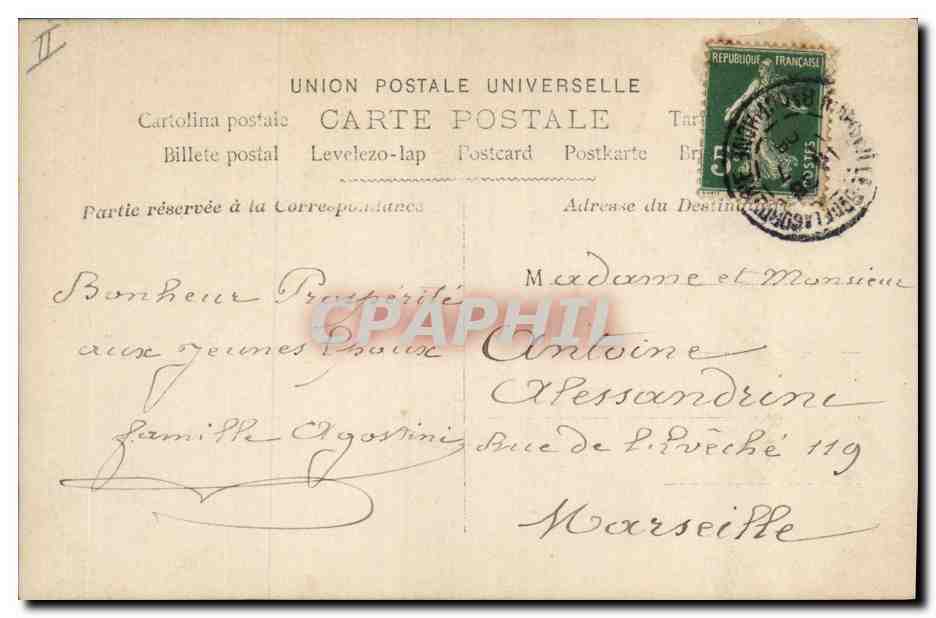 II
UNION POSTALE UNIVERSELLE
Cartolina postale CARTE POSTALE
Billete postal Levelezo-lap Postcard Postkarte
Partie réservée à la Correspondance
Adresse du Destinataire
RÉPUBLIQUE FRANÇAISE
POSTES
Bonheur Prospérité
aux jeunes Epoux
famille Agostini
Madame et Monsieur
Antoine
Alessandrini
Rue de l'Evêché 119
Marseille
CPAPHIL